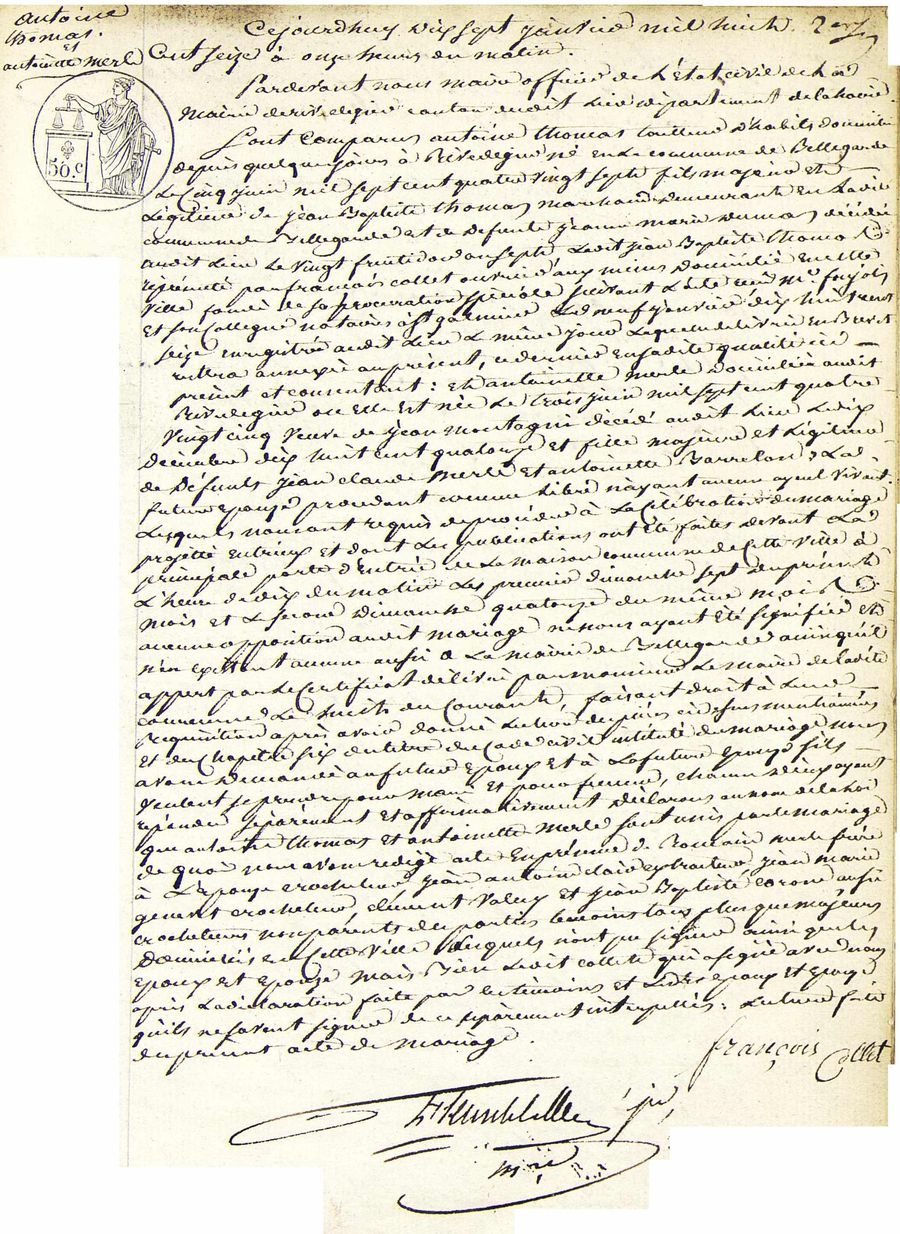 antoine
thomas.
et
antoinette merle
50.c
Cejourdhuy dix sept janvier mil huit
Cent seize à onze heures du matin.
Pardevant nous maire officier de l'état civil de la
Mairie de rivedegier canton dudit lieu département de la Loire
Sont Comparus antoine thomas tailleur d'habits domicilié
depuis quelques jours à Rivedegier né en la commune de Bellegarde
Le Cinq juin mil sept cent quatre vingt sept fils majeur et
Légitime de jean Baptiste thomas marchand demeurant en Ladite
commune de Bellegarde et de Defunte jeanne marie dumas décédée
audit Lieu Le vingt an sept, Ledit jean Baptiste thomas
représenté par francois collet ouvrier aux mines domicilié en cette
ville fondé de sa procuration spéciale suivant L'acte reçu me
Et son Collegue notaires à st galmier Le neuf janvier dix huit cent
seize enregistrée audit Lieu Le même jour Lequel délivré en Brevet
restera annexé au présent, ce dernier en sadite qualité ici
présent et consentant : Et antoinette merle domiciliée audit
Rivedegier où Elle Est née Le trois juin mil sept cent quatre
Vingt cinq Veuve de jean montagni décédé audit Lieu Le dix
décembre dix huit cent quatorze et fille majeure et Légitime
de défunts jean claude merle Et antoinette Barrelon, La
future Epouze procédant comme Libre n'ayant aucun ayeul vivant.
Lesquels nous ont requis de procéder à La Célébration du mariage
projetté entr'eux et dont Les publications ont été faites devant La
principale porte d'entrée de La maison commune de Cette ville à
L'heure de dix du matin Les premier dimanche sept du présent
mois et Le second Dimanche quatorze du même mois
aucune opposition audit mariage ne nous ayant Eté signifiée et
n'en existant aucune aussi à La mairie de Bellegarde ainsi qu'il
appert par Le Certificat délivré par monsieur Le maire de Ladite
commune Le huit du Courant, faisant droit à Leur
Requisition après avoir donné Lecture des pièces ci dessus mentionnées
Et du Chapitre six du titre du Code civil intitulé du mariage nous
avons Demandé au futur Epoux Et à La future Epouze s'ils
veulent se prendre pour mari Et pour femme, chacun d'eux ayant
répondu séparément Et affirmativement déclarons au nom de la Loi
que antoine thomas et antoinette merle sont unis par le mariage
de quoi nous avons redigé acte En présence de Romain merle frère
à L'Epouze crocheteur, jean antoine clair extracteur, jean marie
crocheteur, clement Valux et jean Baptiste corone aussi
crocheteurs non parents des parties temoins tous plus que majeurs
Domiciliés En Cette Ville Lesquels n'ont pu signer ainsi que les
Epoux et Epouze mais Bien Ledit collet qui a signé avec nous
après La déclaration faite par Les témoins et Lesdits Epoux et Epouze
qu'ils ne savent signer de ce séparément interpellés : Lecture faite
du présent acte de mariage.
françois Collet